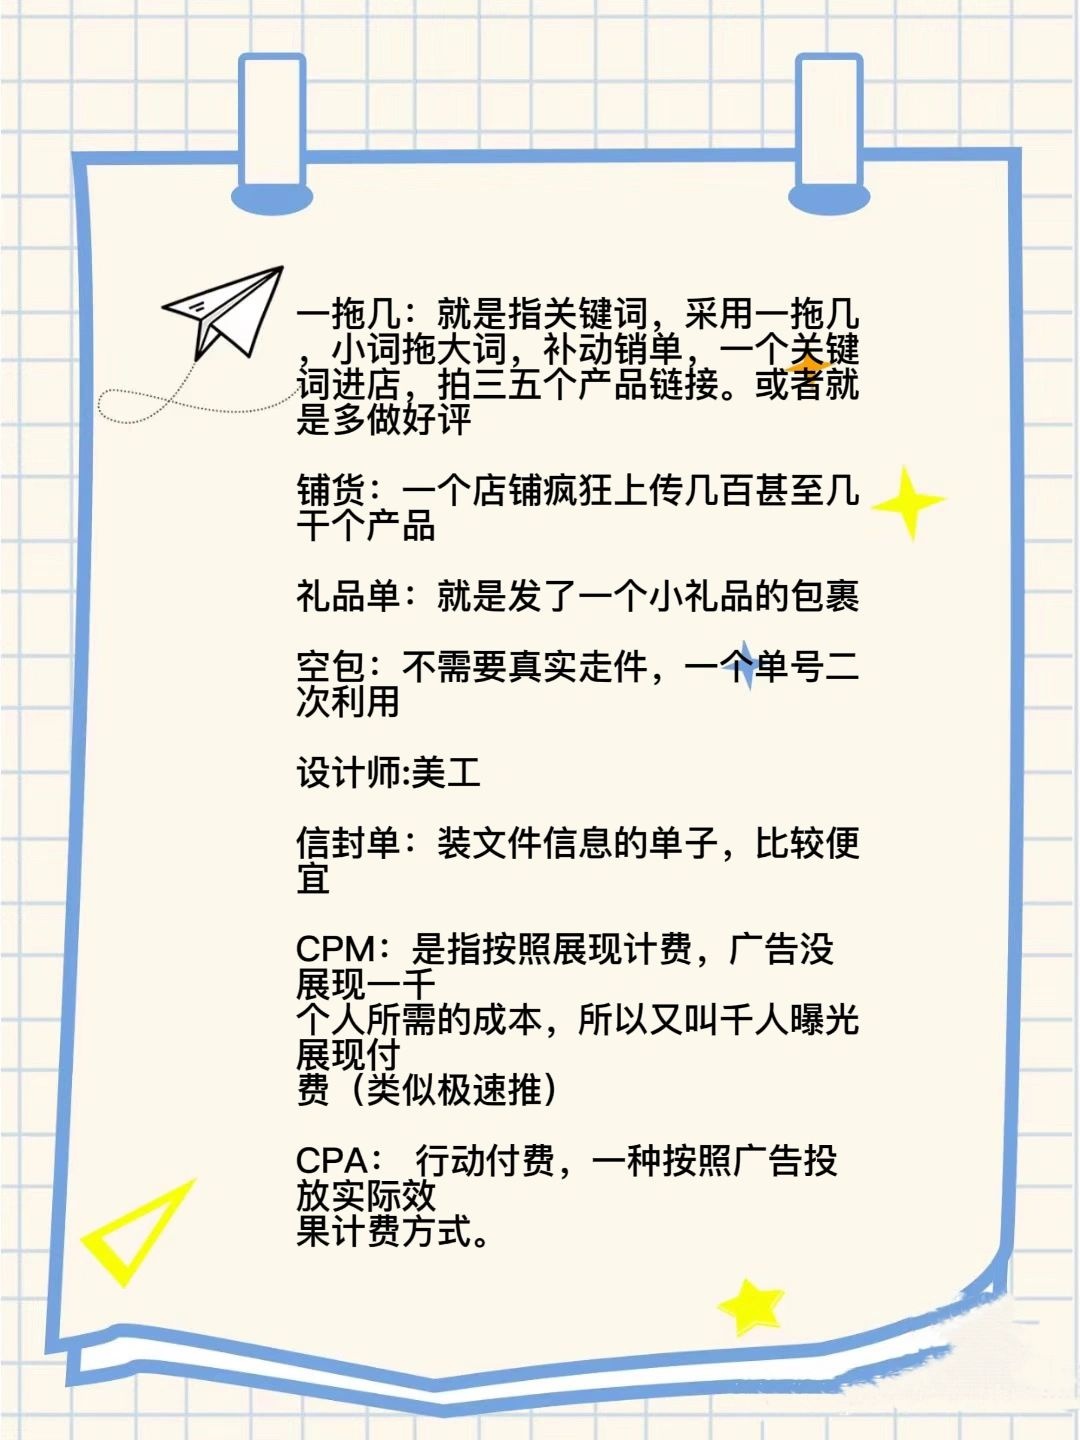 一拖几：就是指关键词，采用一拖几
，小词拖大词，补动销单，一个关键
词进店，拍三五个产品链接。或者就
是多做好评
铺货：一个店铺疯狂上传几百甚至几
千个产品
礼品单：就是发了一个小礼品的包裹
空包：不需要真实走件，一个单号二
次利用
设计师:美工
信封单：装文件信息的单子，比较便
宜
CPM：是指按照展现计费，广告没
展现一千
个人所需的成本，所以又叫千人曝光
展现付
费（类似极速推）
CPA： 行动付费，一种按照广告投
放实际效
果计费方式。